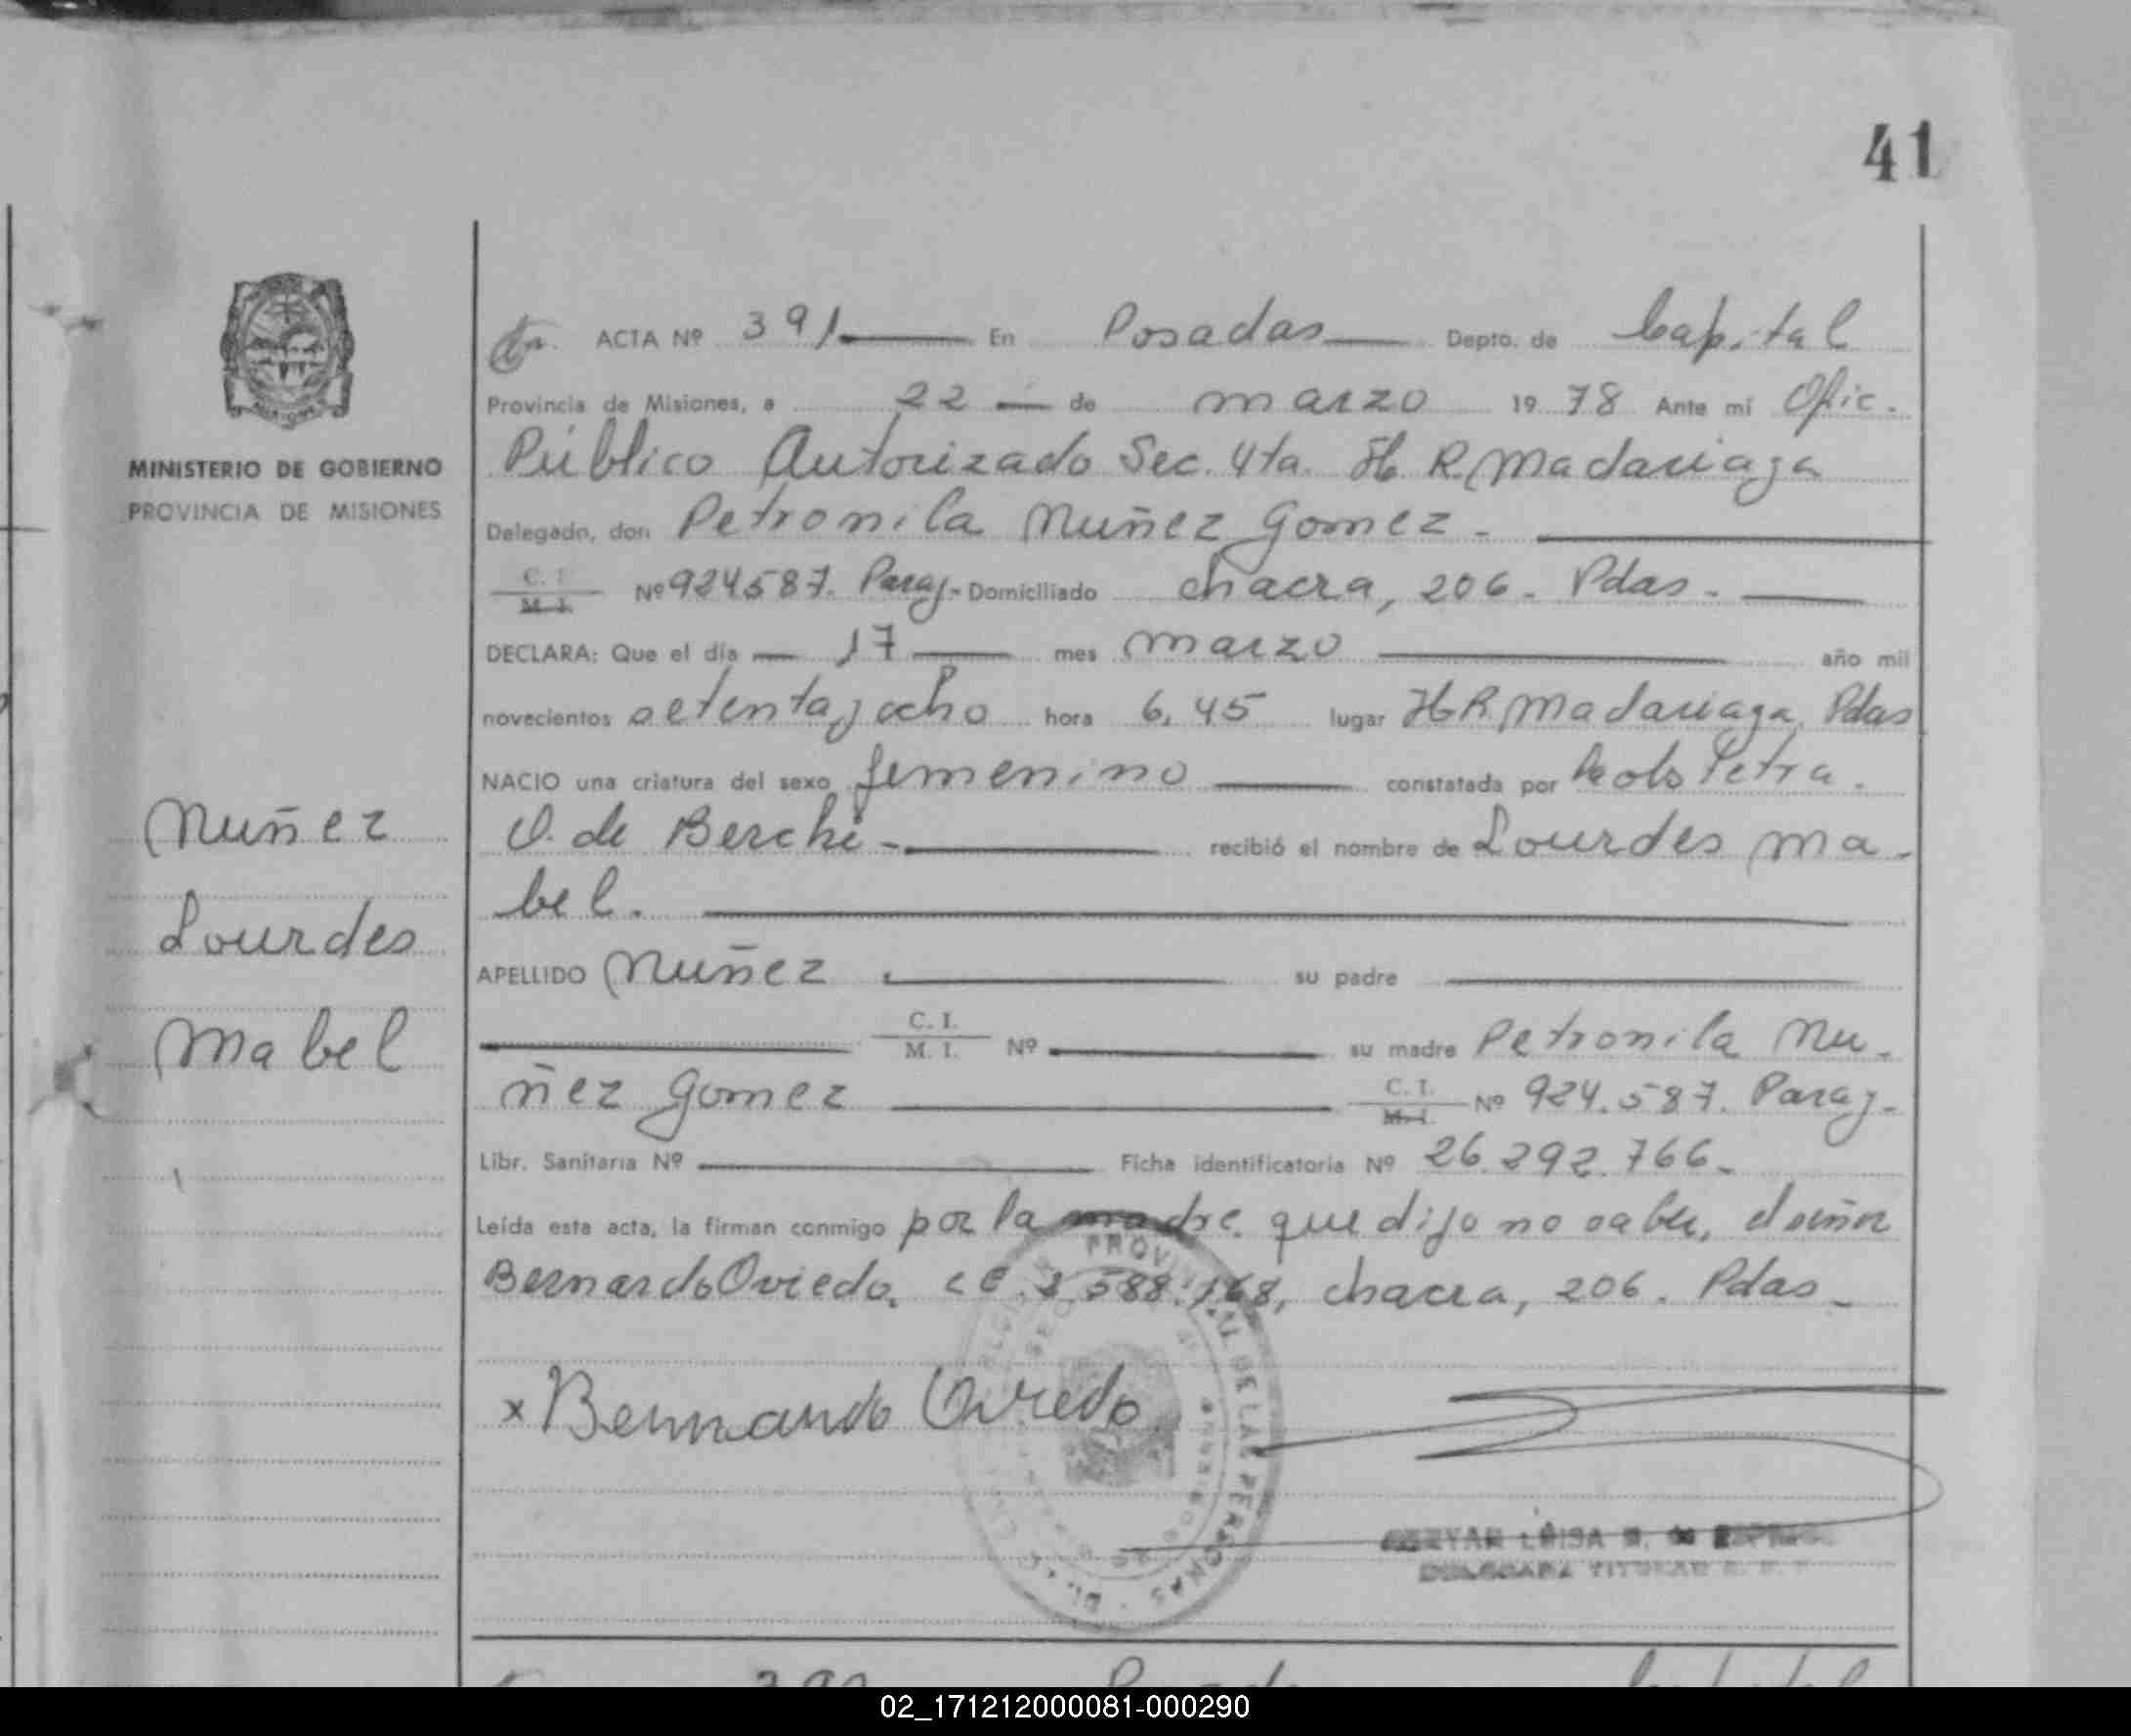 41
ACTA Nº 391 En Posadas Depto. de Capital
Provincia de Misiones, a 22 de marzo 1978 Ante mí Ofic.
MINISTERIO DE GOBIERNO
PROVINCIA DE MISIONES
Público Autorizado Sec. 4ta. H R Madariaga
Delegado, don Petronila Nuñez Gomez.
C. I. M. I. Nº 924587. Parag- Domiciliado chacra, 206. Pdas.
DECLARA: Que el día 17 mes marzo año mil
novecientos setenta y ocho hora 6,45 lugar H R. Madariaga. Pdas
NACIO una criatura del sexo femenino constatada por Petra.
O. de Berchi- recibió el nombre de Lourdes Ma-
bel.
APELLIDO Nuñez su padre
C. I. M. I. Nº su madre Petronila Nu-
ñez Gomez C. I. M. I. Nº 924.587. Parag-
Libr. Sanitaria Nº Ficha identificatoria Nº 26.292.766-
Leída esta acta, la firman conmigo por la madre que dijo no saber, el señor
Bernardo Oviedo, 588.168, chacra, 206. Pdas-
x Bernardo Oviedo
Nuñez
Lourdes
Mabel
PROVINCIAL DE LAS PERSONAS
LUISA
02_171212000081-000290